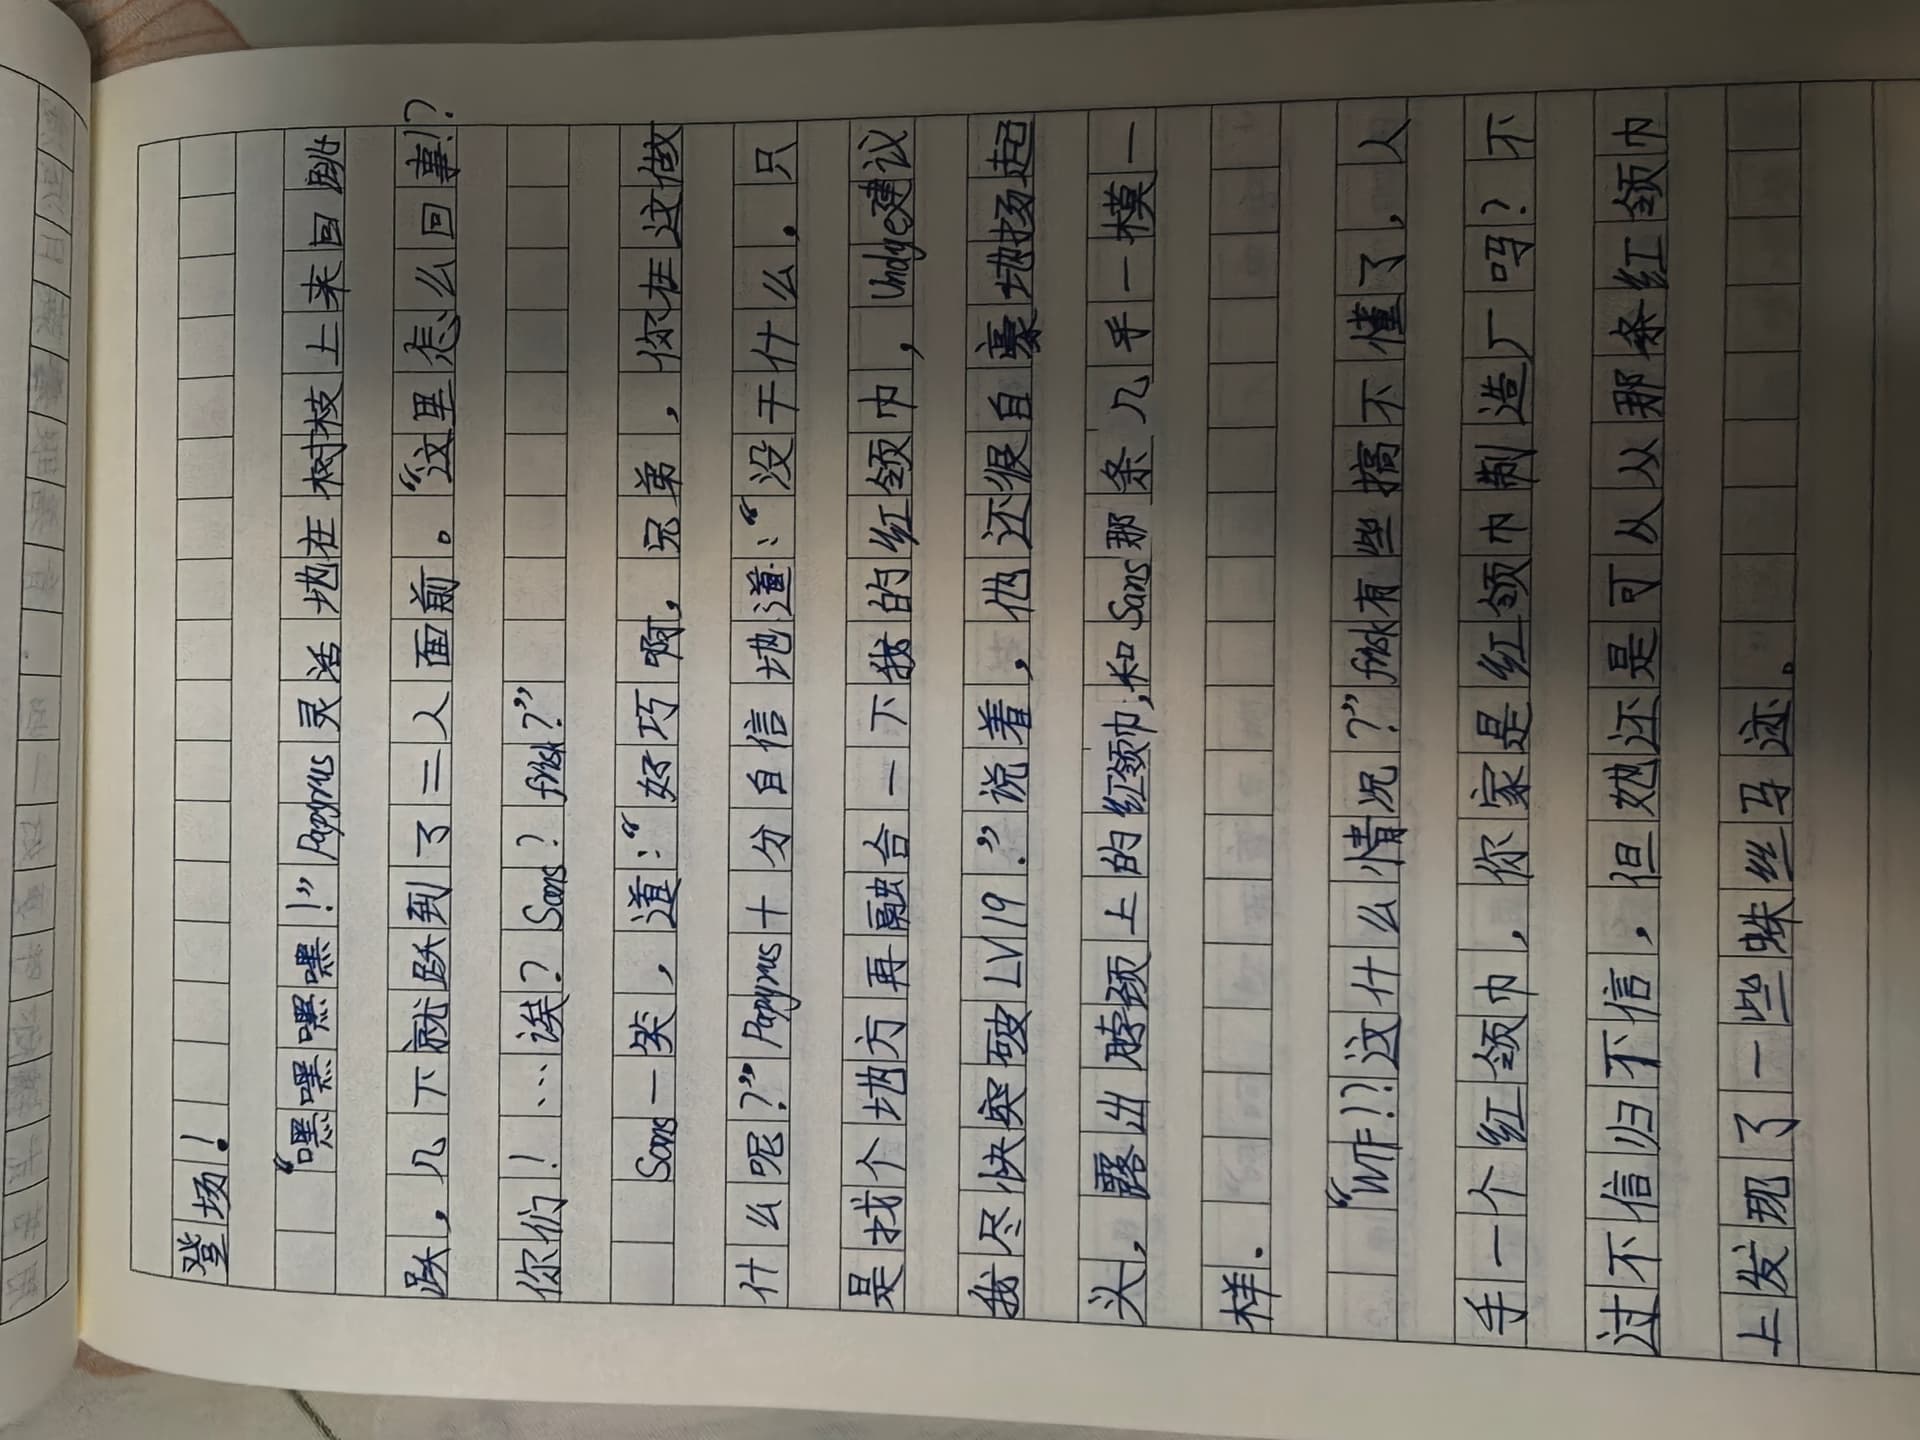 登场！
“嘿嘿嘿嘿！”Papyrus灵活地在树枝上来回跳
跃，几下就跃到了二人面前。“这里怎么回事!?
你们！…诶？Sans？frisk？”
Sans一笑，道：“好巧啊，兄弟，你在这做
什么呢？”Papyrus十分自信地道：“没干什么，只
是找个地方再融合一下我的红领巾，Undyne建议
我尽快突破LV19.”说着，他还很自豪地扬起
头，露出脖颈上的红领巾，和Sans那条几乎一模一
样.
“WTF!?这什么情况？”frisk有些搞不懂了，人
手一个红领巾，你家是红领巾制造厂吗？不
过不信归不信，但她还是可从从那条红领巾
上发现了一些蛛丝马迹.